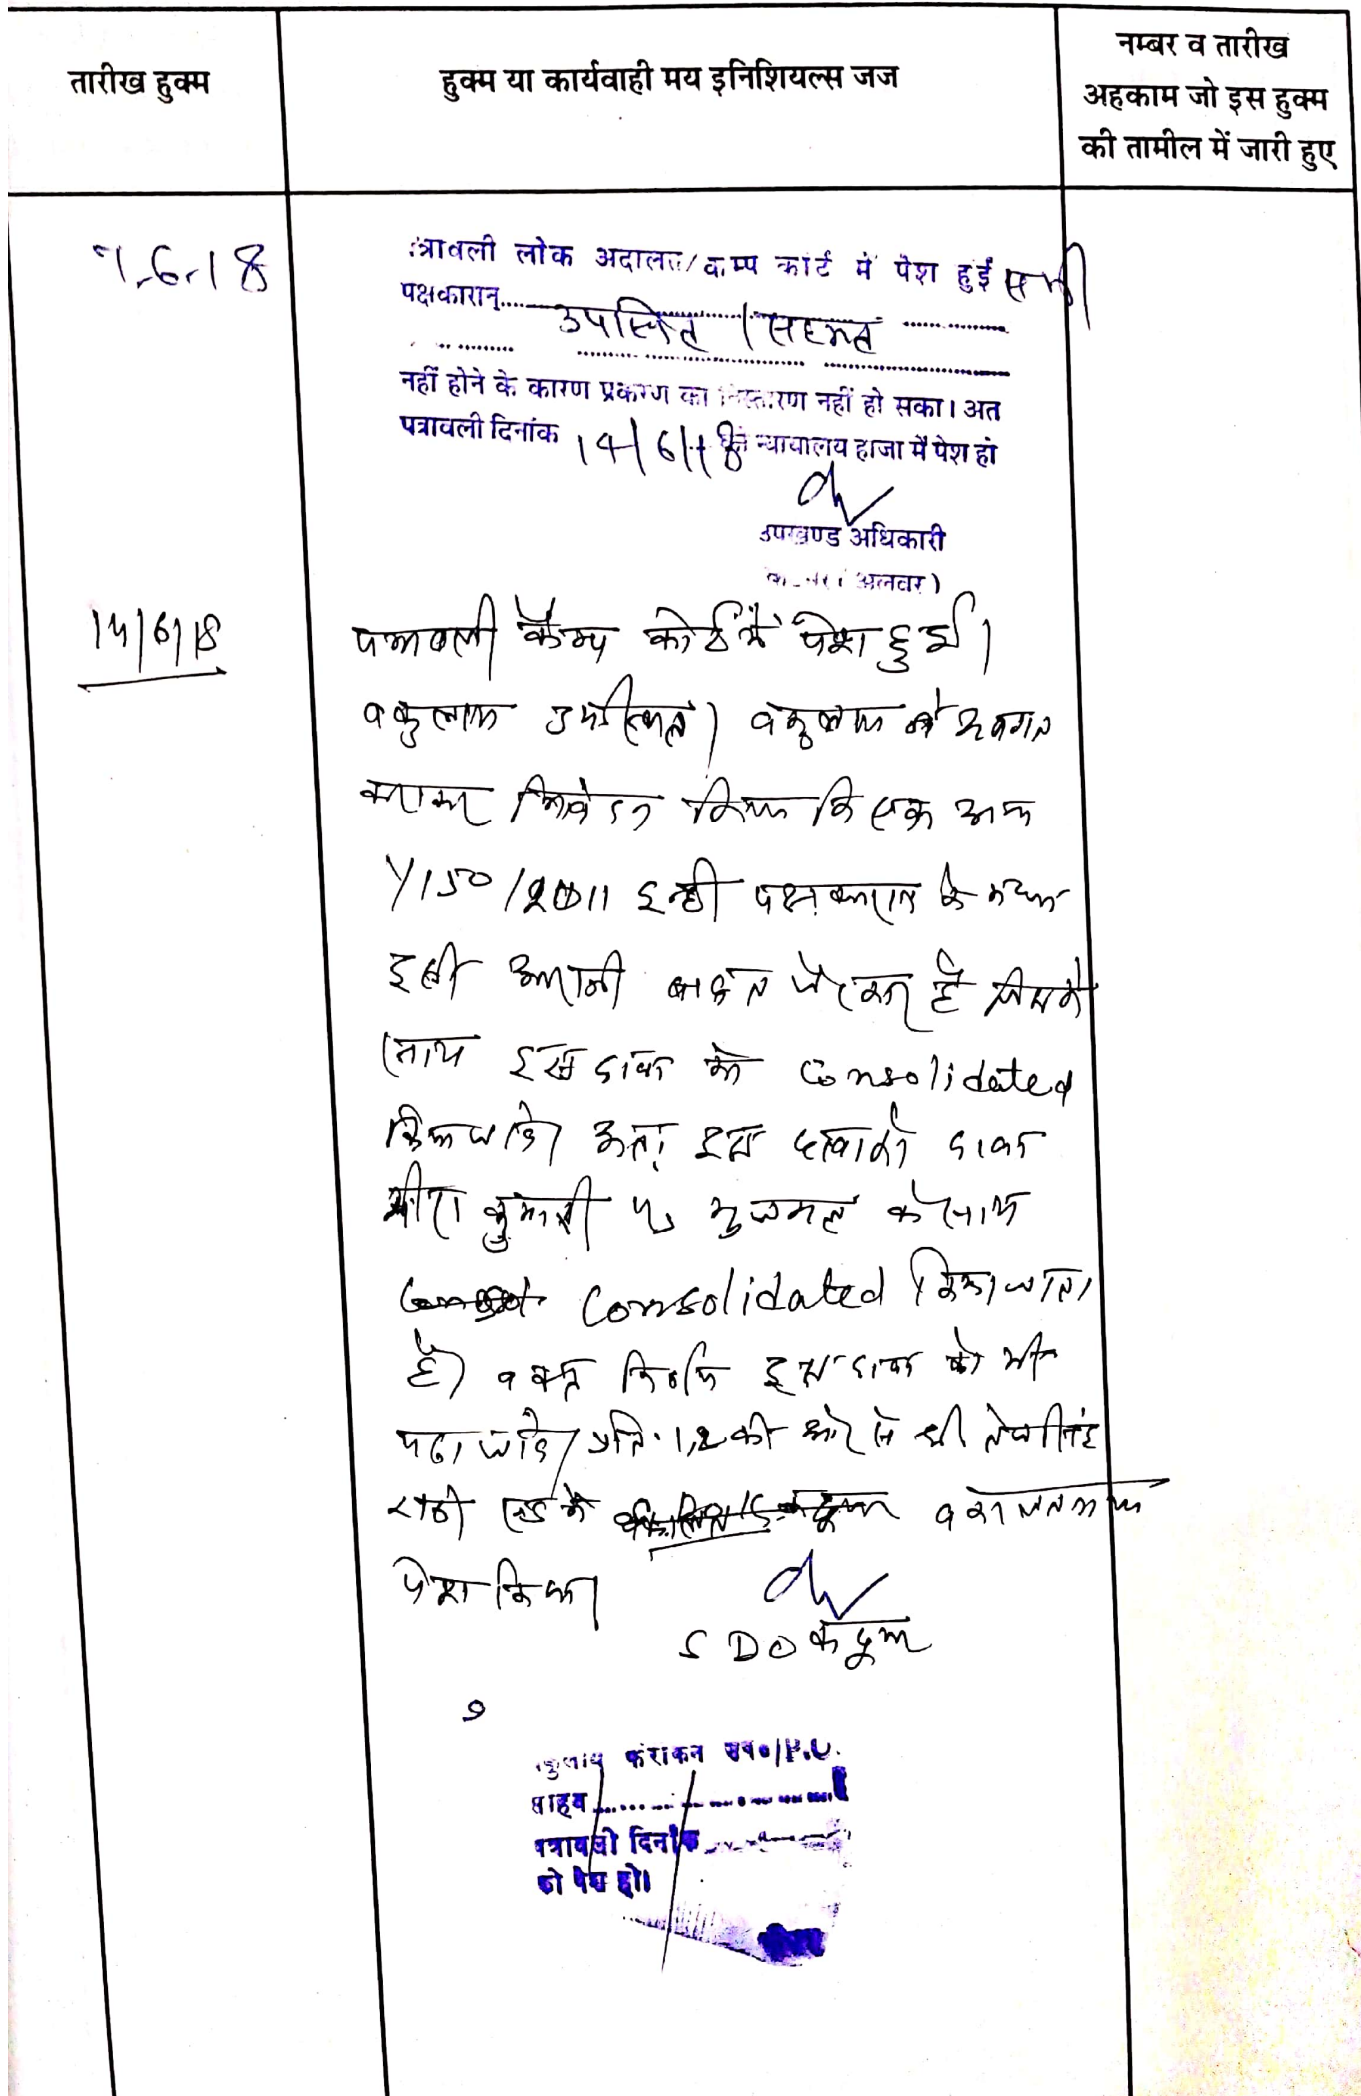 तारीख हुक्म
हुक्म या कार्यवाही मय इनिशियल्स जज
नम्बर व तारीख
अहकाम जो इस हुक्म
की तामील में जारी हुए
6.18
त्रावली लोक अदालत/कम्प कोर्ट में पेश हुई
पक्षकारान् उपस्थित / सहमत
नहीं होने के कारण प्रकरण का निस्तारण नहीं हो सका। अत
पत्रावली दिनांक 14/6/18 को न्यायालय हाजा में पेश हो
उपखण्ड अधिकारी
(अलवर)
14/6/18
पत्रावली कैम्प कोर्ट में पेश हुई।
वकुलाय उपस्थित। वकुलाय ने अवगत
कराकर निवेदन किया कि एक अन्य
150/2011 इन्ही पक्षकारान के मध्य
इसी आराजी बाबत है जिसके
साथ इस दावा को Consolidated
किया जावे। अतः इस दावा को दावा
मीरा कुमारी के साथ
Consolidated किया जाता
है। वक्त निर्णय इस दावा को भी
पढा जावे। प्रति. 1,2 की ओर से श्री तेजसिंह
एड ने वकालतनामा
पेश किया।
SDO कठूमर
साहब
पत्रावली दिनांक
को पेश हो।